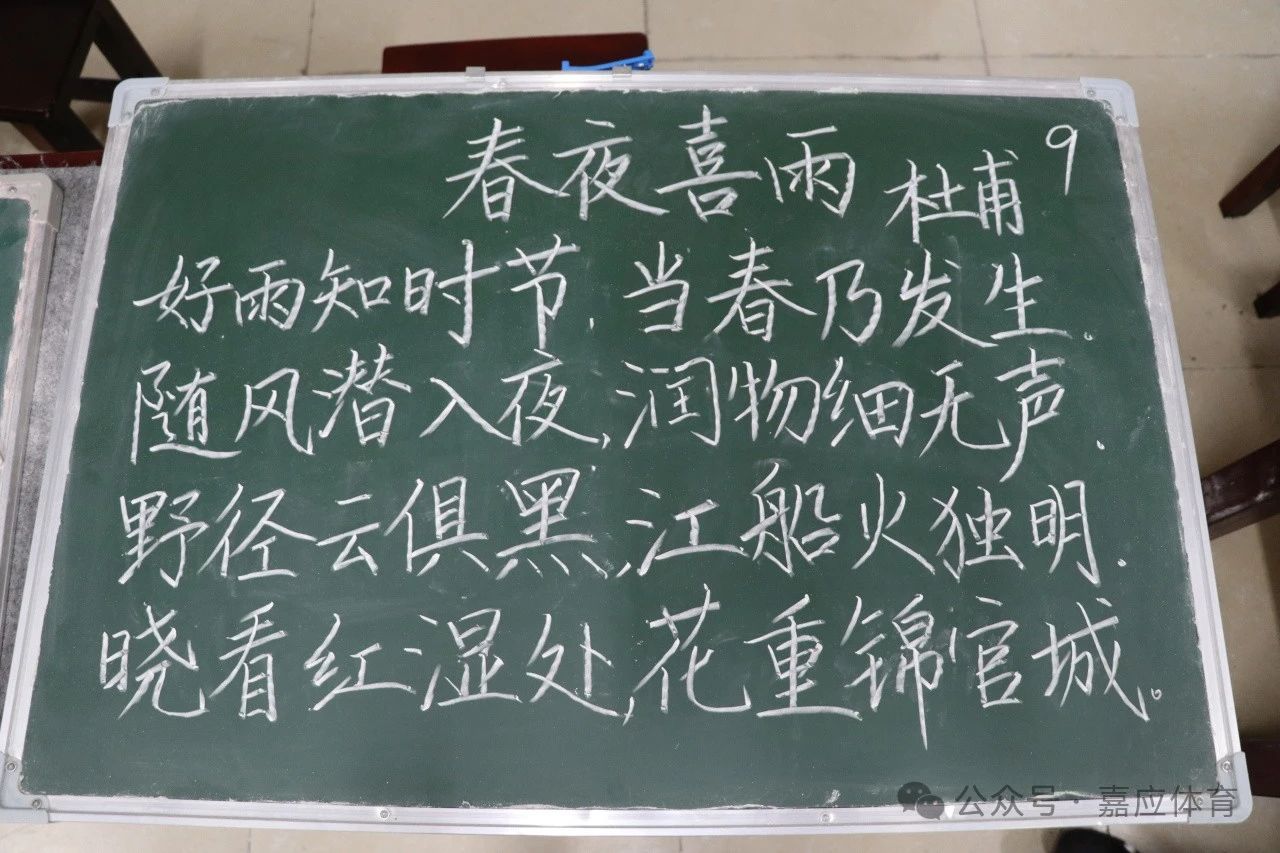 春夜喜雨 杜甫 9
好雨知时节,当春乃发生.
随风潜入夜,润物细无声.
野径云俱黑,江船火独明.
晓看红湿处,花重锦官城。
公众号·嘉应体育